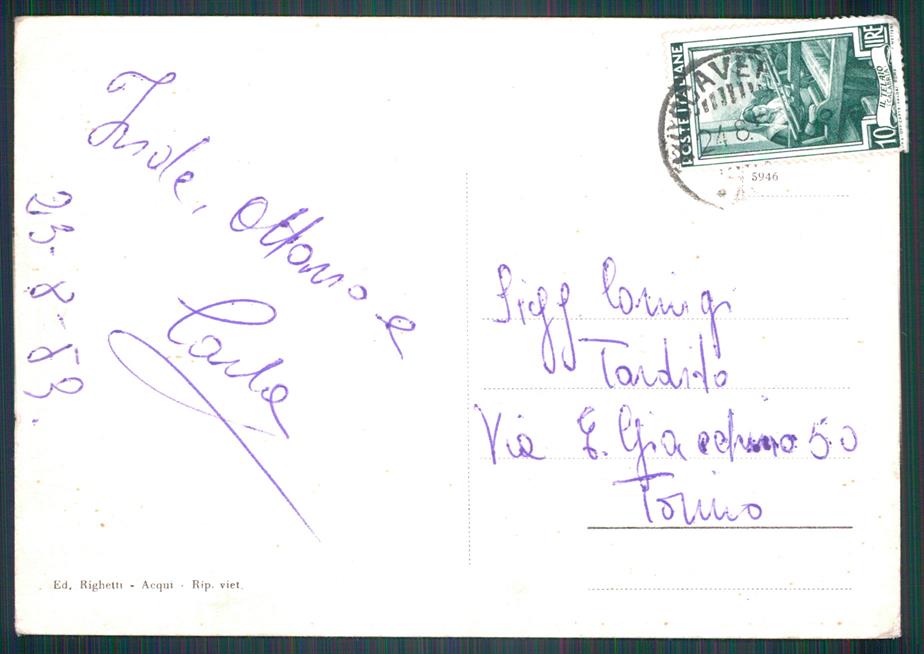 Isole, Ottono e
Carla
23-8-53.
POSTE ITALIANE
LIRE
10
IL TELAIO
CALABRIA
24.8.
5946
Sigg. Coniugi
Tardito
Via E. Giacchino 50
Torino
Ed. Righetti - Acqui - Rip. viet.